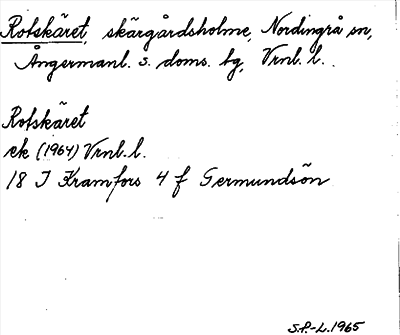 Rotskäret, skärgårdsholme, Nordingrå sn,
Ångermanl. s. doms. tg, Vrnl. l.
Rotskäret
ek (1964) Vrnl. l.
18 I Kramfors 4 f Germundsön
S.P.-L. 1965